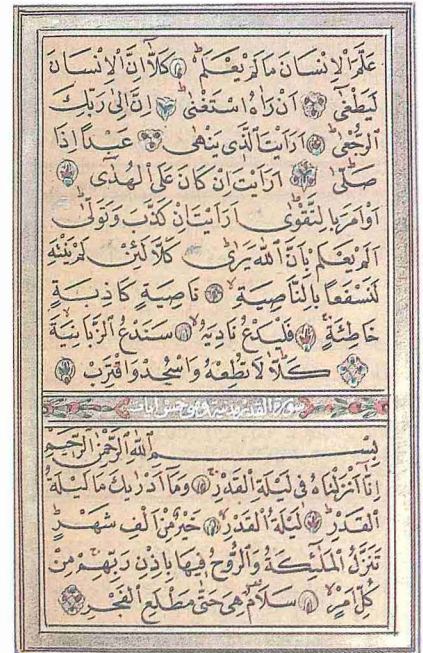 عَلَّمَ الْاِنْسَانَ مَا لَمْ يَعْلَمْ كَلَّا اِنَّ الْاِنْسَانَ
لَيَطْغٰى اَنْ رَاٰهُ اسْتَغْنٰى اِنَّ اِلٰى رَبِّكَ
الرُّجْعٰى اَرَاَيْتَ الَّذِى يَنْهٰى عَبْدًا اِذَا
صَلّٰى اَرَاَيْتَ اِنْ كَانَ عَلَى الْهُدٰى
اَوْ اَمَرَ بِالتَّقْوٰى اَرَاَيْتَ اِنْ كَذَّبَ وَتَوَلّٰى
اَلَمْ يَعْلَمْ بِاَنَّ اللّٰهَ يَرٰى كَلَّا لَئِنْ لَمْ يَنْتَهِ
لَنَسْفَعًا بِالنَّاصِيَةِ نَاصِيَةٍ كَاذِبَةٍ
خَاطِئَةٍ فَلْيَدْعُ نَادِيَهُ سَنَدْعُ الزَّبَانِيَةَ
كَلَّا لَا تُطِعْهُ وَاسْجُدْ وَاقْتَرِبْ
سورة القدر مدنية وهي خمس آيات
بِسْمِ اللّٰهِ الرَّحْمٰنِ الرَّحِيمِ
اِنَّا اَنْزَلْنَاهُ فِى لَيْلَةِ الْقَدْرِ وَمَا اَدْرٰيكَ مَا لَيْلَةُ
الْقَدْرِ لَيْلَةُ الْقَدْرِ خَيْرٌ مِنْ اَلْفِ شَهْرٍ
تَنَزَّلُ الْمَلٰئِكَةُ وَالرُّوحُ فِيهَا بِاِذْنِ رَبِّهِمْ مِنْ
كُلِّ اَمْرٍ سَلَامٌ هِىَ حَتّٰى مَطْلَعِ الْفَجْرِ